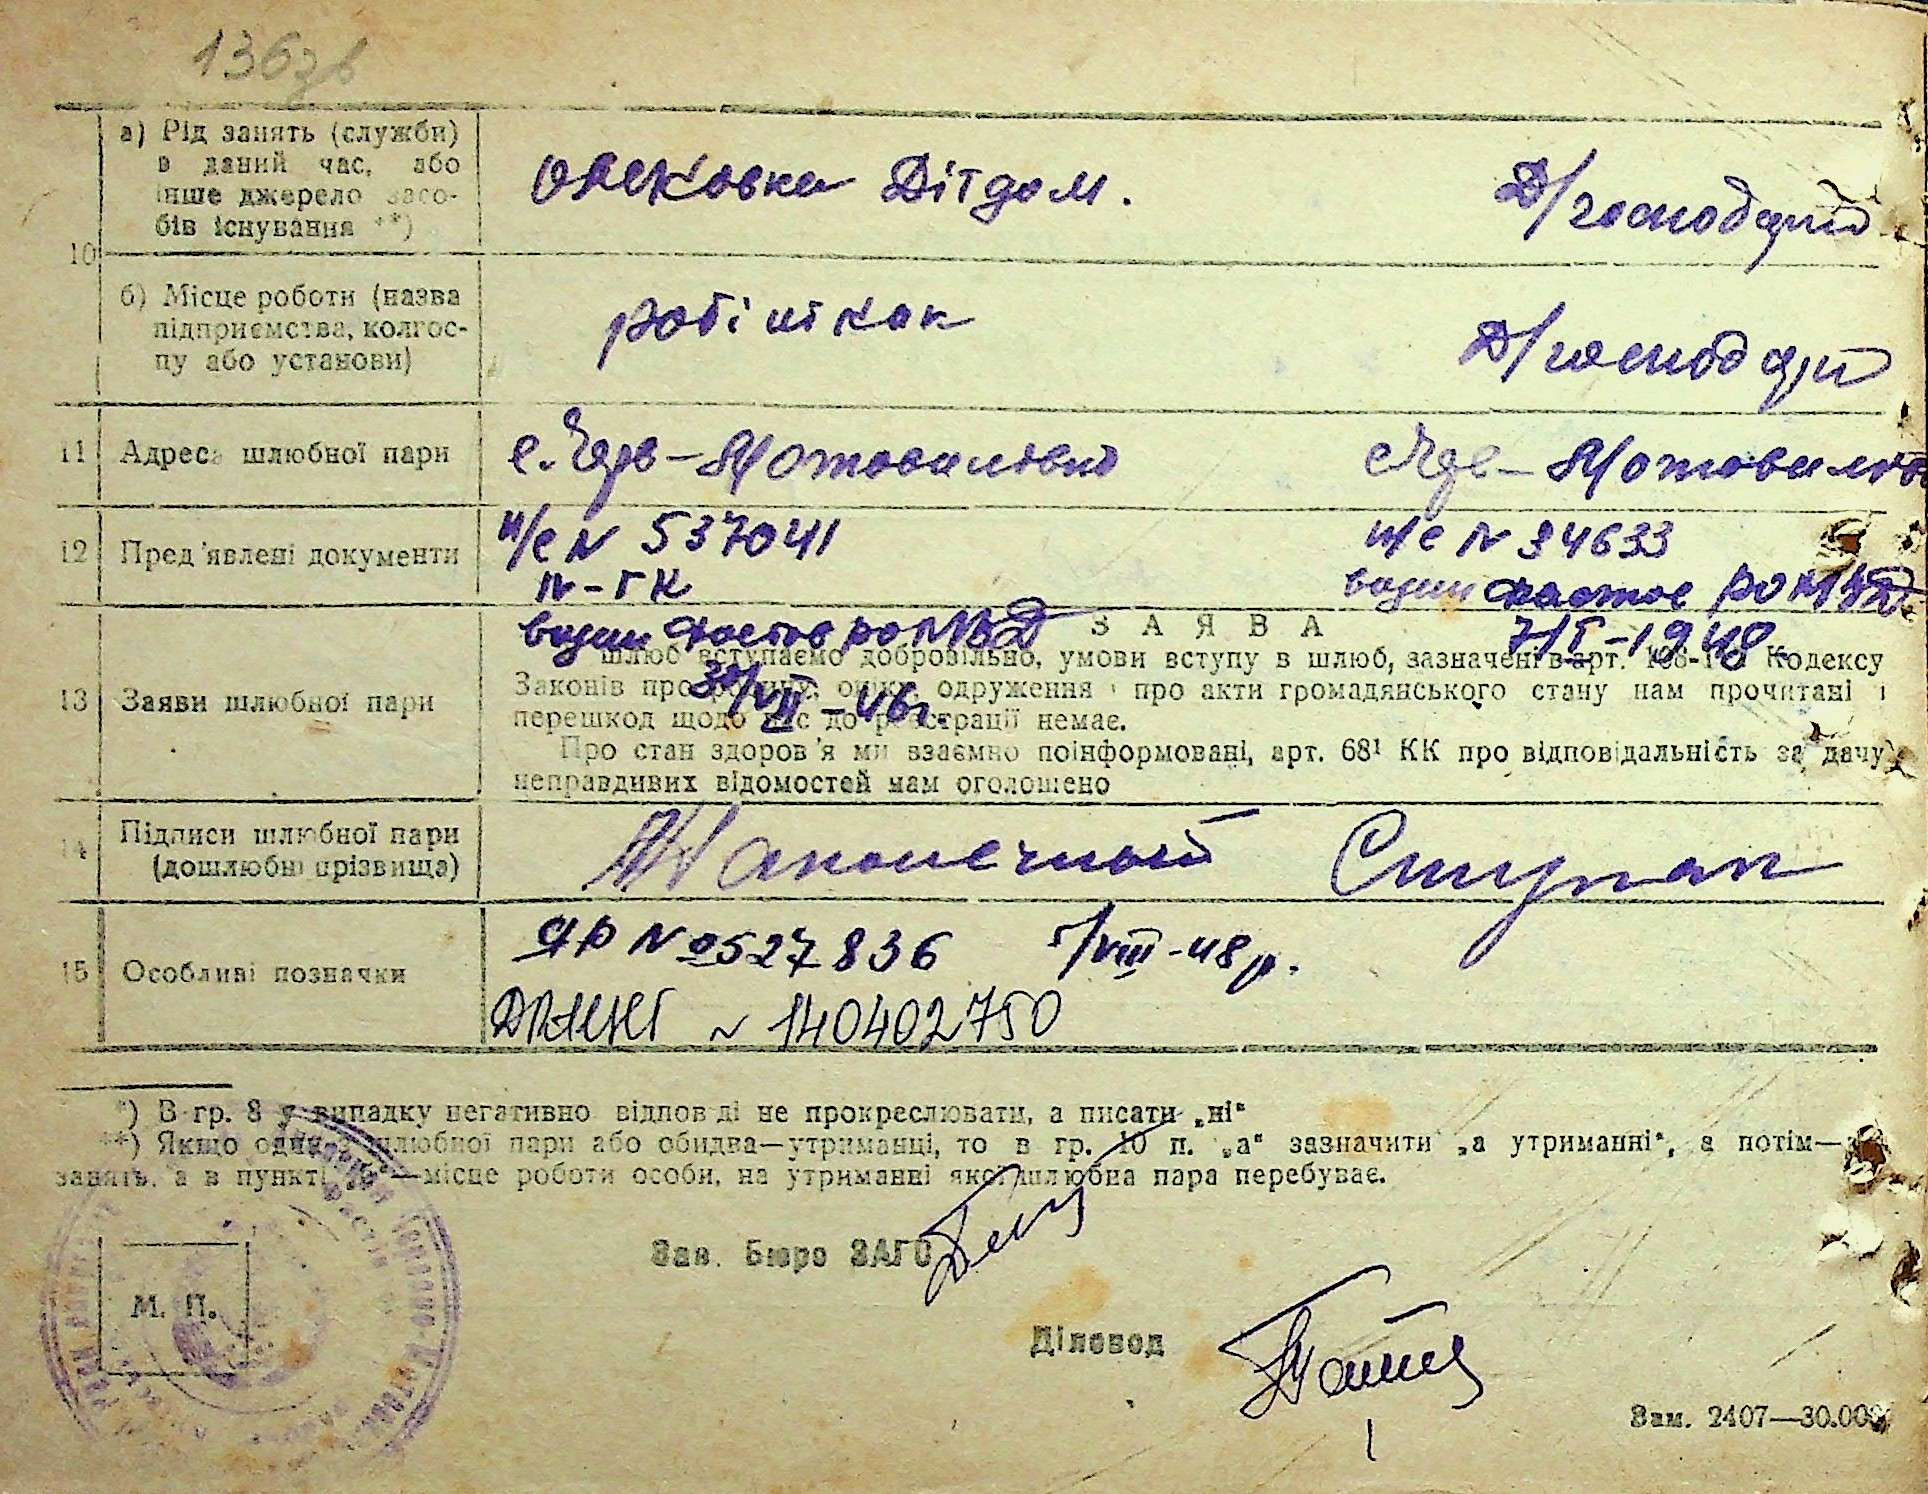 136зв
а) Рід занять (служби) в даний час, або інше джерело засобів існування **)
Дітдом.
Д/господарці
10
б) Місце роботи (назва підприємства, колгоспу або установи)
робітник
Д/господарці
11 Адреса шлюбної пари
с. Чер-Мотовилівка
12 Пред'явлені документи
п/с N 537041
п/с N 94633
IV-ГК
видан Фастов РОМВД
видан Фастов РОМВД
7/I-1948.
13 Заяви шлюбної пари
ЗАЯВА
шлюб вступаємо добровільно, умови вступу в шлюб, зазначені в арт. Кодексу
Законів про одруження і про акти громадянського стану нам прочитані і
перешкод щодо нас до реєстрації немає.
Про стан здоров'я ми взаємно поінформовані, арт. 68¹ КК про відповідальність за дачу
неправдивих відомостей нам оголошено
14 Підписи шлюбної пари (дошлюбні прізвища)
Ступак
15 Особливі позначки
N 0527836
/VIII-48р.
N 140402750
*) В гр. 8 у випадку негативно відповіді не прокреслювати, а писати „ні“
**) Якщо один з шлюбної пари або обидва—утриманці, то в гр. 10 п. „а“ зазначити „а утриманні“, а потім—
занять, а в пункті —місце роботи особи, на утриманні якої шлюбна пара перебуває.
Зав. Бюро ЗАГС
М. П.
Діловод
Зам. 2407—30.000